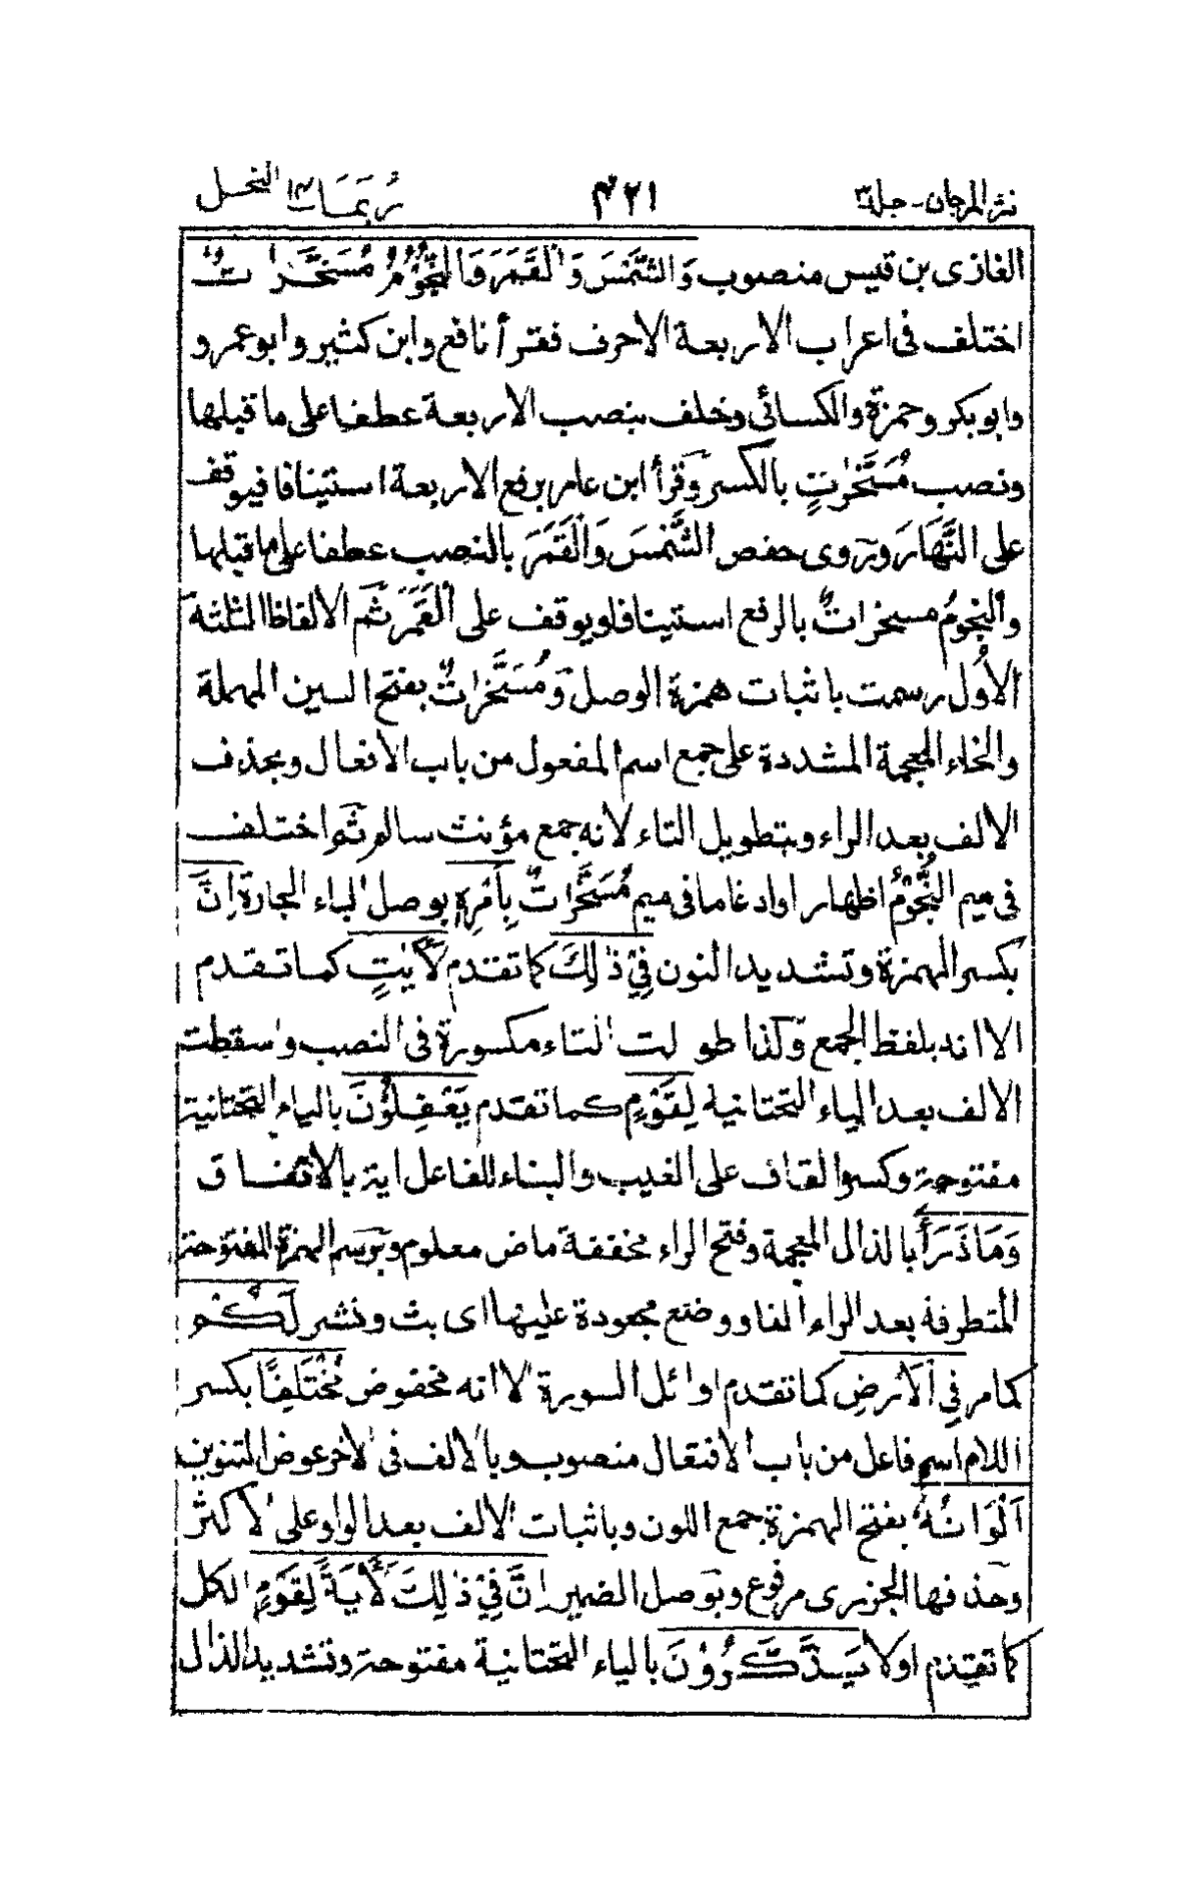 نثر المرجان - جلد ٣ ٤٢١ ربما ١٤ النحل
الغازى بن قيس منصوب وَالشَّمْسَ وَالْقَمَرَ وَالنُّجُوْمُ مُسَخَّرٰتٌ
اختلف فى اعراب الاربعة الاحرف فقرأ نافع وابن كثير وابو عمرو
وابو بكر وحمزة والكسائى وخلف بنصب الاربعة عطفا على ما قبلها
ونصب مُسَخَّرٰتٍ بالكسر وقرأ ابن عامر برفع الاربعة استينافا فيوقف
على النَّهَارَ وروى حفص الشَّمْسَ وَالْقَمَرَ بالنصب عطفا على ما قبلها
وَالنجومُ مسخراتٌ بالرفع استينافا ويوقف على الْقَمَرَ ثم الالفاظ الثلثة
الاُول رسمت باثبات همزة الوصل وَمُسَخَّرٰتٌ بفتح السين المهملة
والخاء المعجمة المشددة على جمع اسم المفعول من باب الافعال وبحذف
الالف بعد الراء وبتطويل التاء لانه جمع مؤنث سالم ثم اختلف
فى ميم النُّجُوْمُ اظهارا وادغاما فى ميم مُسَخَّرٰتٌ بِاَمْرِهٖ بوصل الباء الجارة اِنَّ
بكسر الهمزة وتشديد النون فِىْ ذٰلِكَ كما تقدم لَاٰيٰتٍ كما تقدم
الا انه بلفظ الجمع وكذا طولت التاء مكسورة فى النصب وسقطت
الالف بعد الياء التحتانية لِقَوْمٍ كما تقدم يَعْقِلُوْنَ بالياء التحتانية
مفتوحة وكسر القاف على الغيب والبناء للفاعل اية بالاتفاق
وَمَا ذَرَأَ بالذال المعجمة وفتح الراء مخففة ماض معلوم وترسم الهمزة المفتوحة
المتطرفة بعد الراء الفا ووضع مجعودة عليها اى بث ونشر لَكُمْ
كما مر فِى الْاَرْضِ كما تقدم اوائل السورة الا انه مخفوض مُخْتَلِفًا بكسر
اللام اسم فاعل من باب الافتعال منصوب وبالالف فى الاخر عوض التنوين
اَلْوَانُهٗ بفتح الهمزة جمع اللون وباثبات الالف بعد الواو على الاكثر
وحذفها الجزرى مرفوع وبوصل الضمير اِنَّ فِىْ ذٰلِكَ لَاٰيَةً لِقَوْمٍ الكل
كما تقدم اولا يَذَّكَّرُوْنَ بالياء التحتانية مفتوحة وتشديد الذال